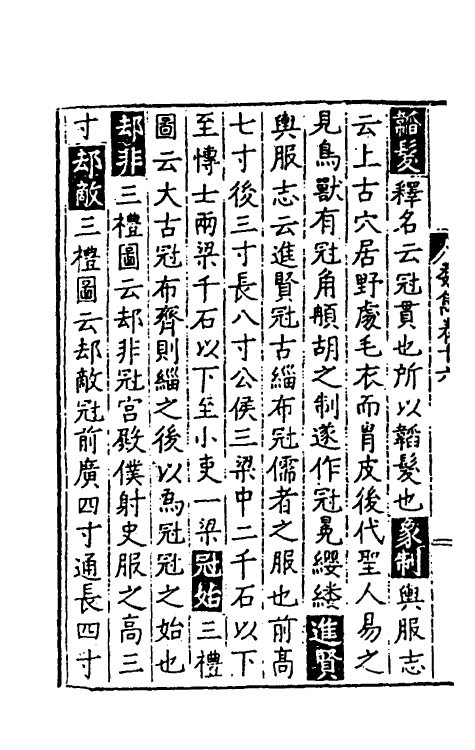 韜髪釋名云冠貫也所以韜髮也象制輿服志
云上古穴居野處毛衣而冐皮後代聖人易之
見鳥獸有冠角𩑺胡之制遂作冠冕纓緌進賢
輿服志云進賢冠古緇布冠儒者之服也前高
七寸後三寸長八寸公侯三梁中二千石以下
至博士兩梁千石以下至小吏一梁冠始三禮
圖云大古冠布齊則緇之後以為冠冠之始也
却非三禮圖云却非冠宫殿僕射史服之高三
寸却敵三禮圖云却敵冠前廣四寸通長四寸